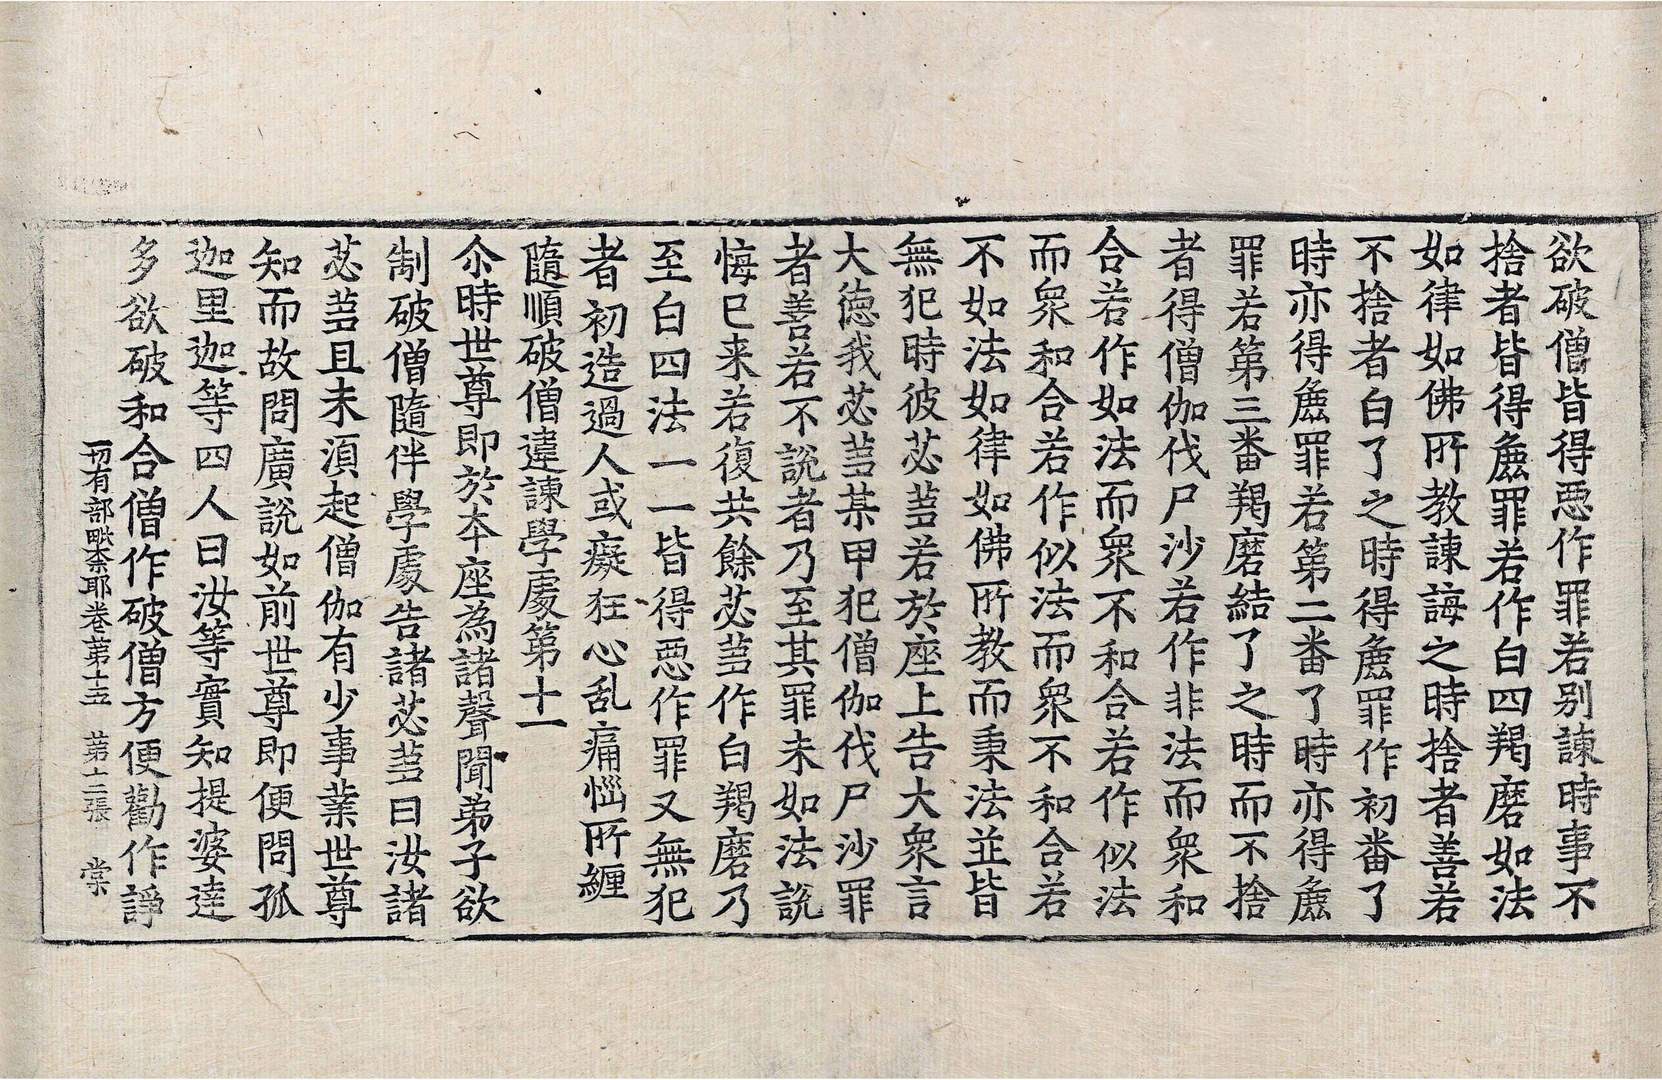 欲破僧皆得惡作罪若别諫時事不
捨者皆得麁罪若作白四羯磨如法
如律如佛所教諫誨之時捨者善若
不捨者白了之時得麁罪作初番了
時亦得麁罪若第二番了時亦得麁
罪若第三番羯磨結了之時而不捨
者得僧伽伐尸沙若作非法而衆和
合若作如法而衆不和合若作似法
而衆和合若作似法而衆不和合若
不如法如律如佛所教而秉法並皆
無犯時彼苾蒭若於座上告大衆言
大德我苾蒭某甲犯僧伽伐尸沙罪
者善若不説者乃至其罪未如法説
悔已来若復共餘苾蒭作白羯磨乃
至白四法一一皆得惡作罪又無犯
者初造過人或癡狂心乱痛惱所纏
隨順破僧違諫學處第十一
尒時世尊即於本座為諸聲聞弟子欲
制破僧隨伴學處告諸苾蒭曰汝諸
苾蒭且未湏起僧伽有少事業世尊
知而故問廣説如前世尊即便問孤
迦里迦等四人曰汝等實知提婆達
多欲破和合僧作破僧方便勸作諍
一切有部毗柰耶卷第十五　第十二張　棠